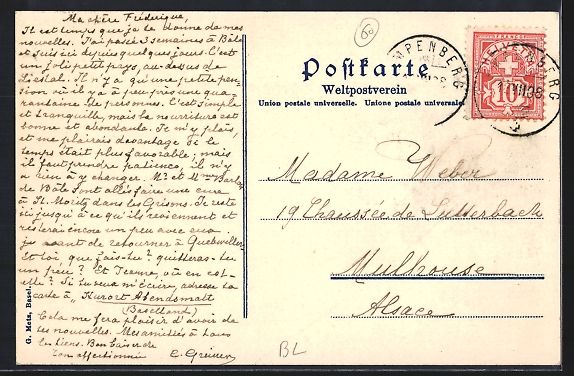 Ma chère Fréderique,
Il est temps que je te donne de mes
nouvelles. J'ai passé 3 semaines à Bâle
et suis ici depuis quelques jours. C'est
un joli petit pays, au-dessus de
Liestal. Il n'y a qu'une petite pen-
sion où il y a à peu près une qua-
rantaine de personnes. C'est simple
et tranquille, mais la nourriture est
bonne et abondante. Je m'y plais,
et me plairais davantage si le
temps était plus favorable; mais
il faut prendre patience, il n'y
a rien à y changer. Mr. et Mme
de Bâle sont allés faire une cure
à St. Moritz dans les Grisons. Je reste
ici jusqu'à ce qu'ils reviennent et
resterai encore un peu avec eux
avant de retourner à Guebwiller.
Et toi, que fais-tu? quitteras-tu
un peu? Et Jeanne, où en est-
elle? Si tu veux m'écrire, adresse ta
carte à „Kurort Abendsmatt
(Baselland)
Cela me fera plaisir d'avoir de
tes nouvelles. Mes amitiés à tous
les tiens. Bon baiser de
ton affectionnée E.
G. Metz, Basel
60
Postkarte.
Weltpostverein
Union postale universelle. Unione postale universale
LAMPENBERG
HELVETIA
FRANCO
10
LAMPENBERG
Madame Weber
19 Chaussée de Lutterbach
Mulhouse
Alsace
BL